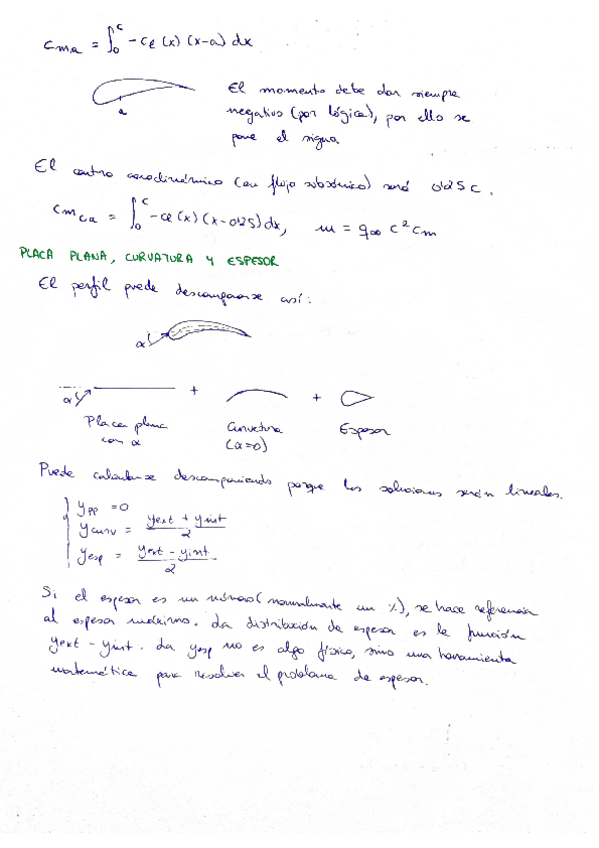 cma = ∫₀ᶜ - cl (x) (x-a) dx
El momento debe dar siempre
negativo (por lógica), por ello se
pone el signo
a
El centro aerodinámico (en flujo subsónico) será 0'25 c.
cmca = ∫₀ᶜ - cl (x) (x-0'25) dx, m = q∞ c² cm
PLACA PLANA, CURVATURA Y ESPESOR
El perfil puede descomponerse así:
α
α + +
Placa plana Curvatura Espesor
con α (α=0)
Puede calcularse descomponiendo porque las soluciones serán lineales.
ypp = 0
ycurv = (yext + yint)/2
yesp = (yext - yint)/2
Si el espesor es un número (normalmente un %), se hace referencia
al espesor máximo. La distribución de espesor es la función
yext - yint. La yesp no es algo físico, sino una herramienta
matemática para resolver el problema de espesor.